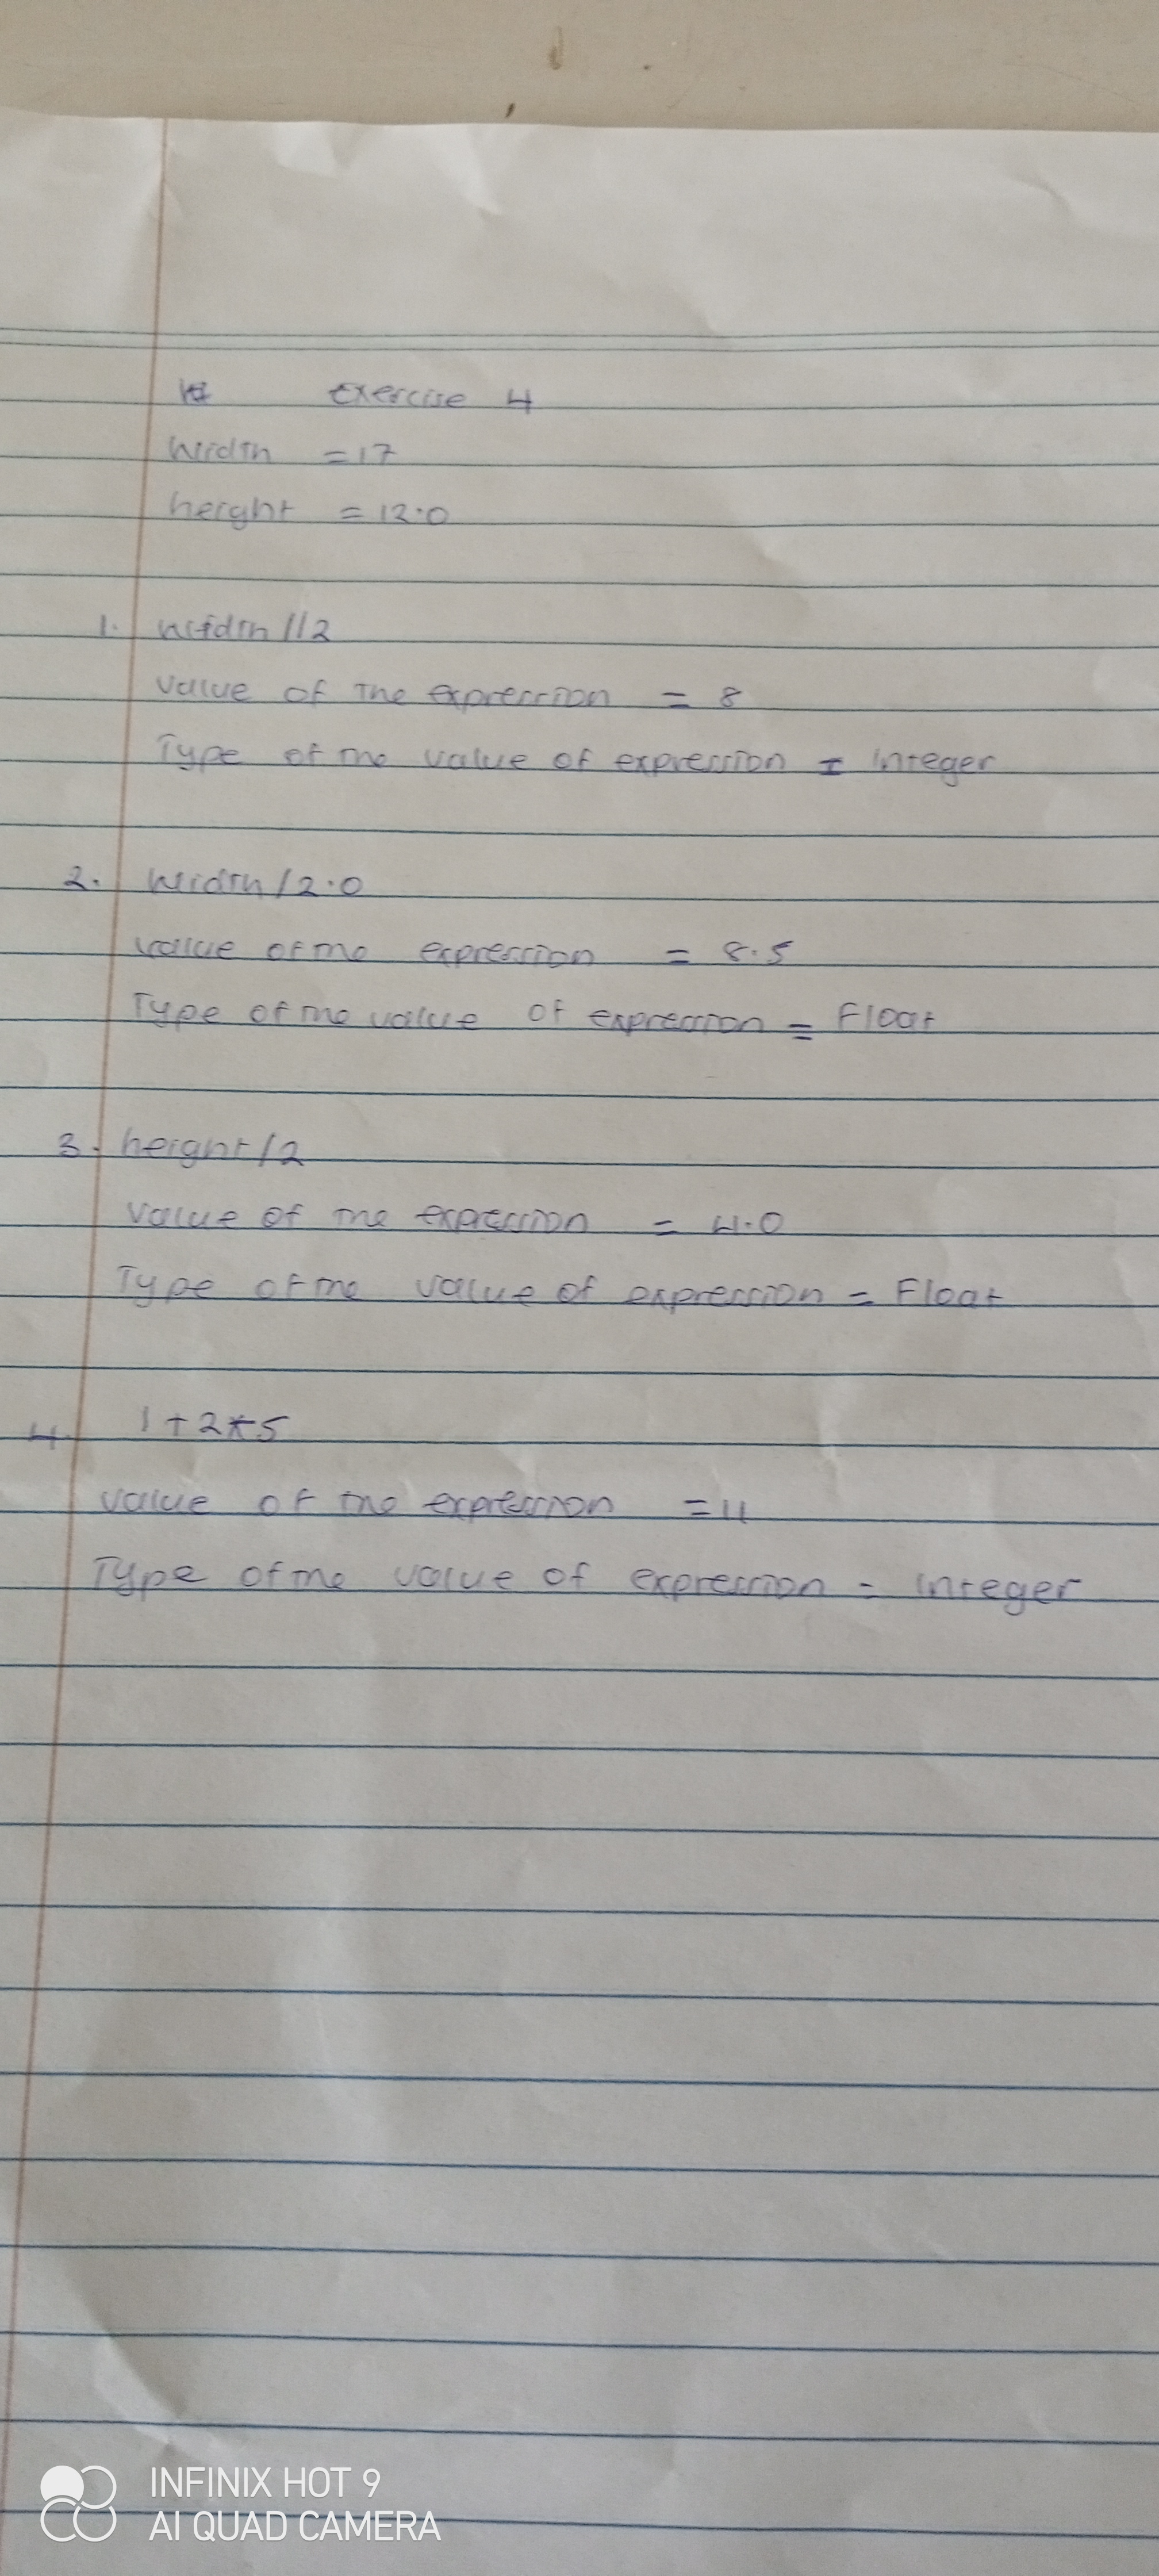 Exercise 4
Width = 17
height = 12.0
1. Width//2
Value of the expression = 8
Type of the value of expression = Integer
2. Width/2.0
Value of the expression = 8.5
Type of the value of expression = Float
3. height/2
Value of the expression = 4.0
Type of the value of expression = Float
4. 1+2*5
Value of the expression = 11
Type of the value of expression = Integer
INFINIX HOT 9
AI QUAD CAMERA